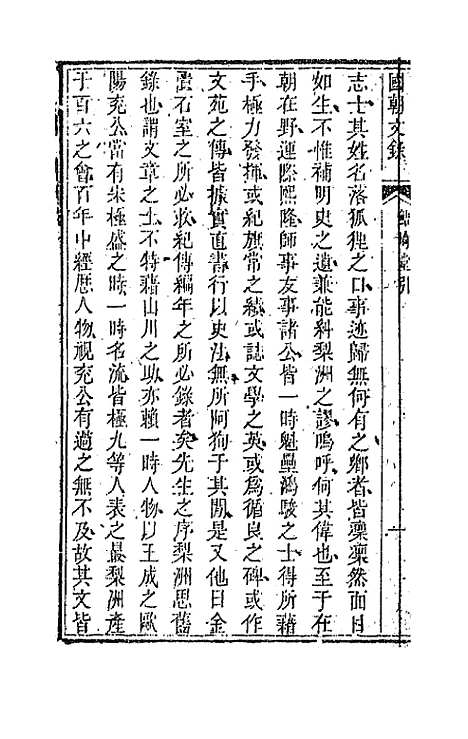 國朝文錄
鮚埼亭引
一
志士其姓名落狐狸之口事迹歸無何有之鄉者皆凜凜然面目
如生不惟補明史之遺兼能糾梨洲之謬嗚呼何其偉也至于在
朝在野運際熙隆師事友事諸公皆一時魁壘鴻駿之士得所藉
手極力發揮或紀旗常之績或誌文學之英或爲循良之碑或作
文苑之傳皆據實直書行以史法無所阿狥于其閒是又他日金
匱石室之所必收紀傳編年之所必錄者矣先生之序梨洲思舊
錄也謂文章之士不特藉山川之助亦賴一時人物以玉成之歐
陽兗公當有宋極盛之時一時名流皆極九等人表之最梨洲產
于百六之會百年中經歷人物視兗公有過之無不及故其文皆